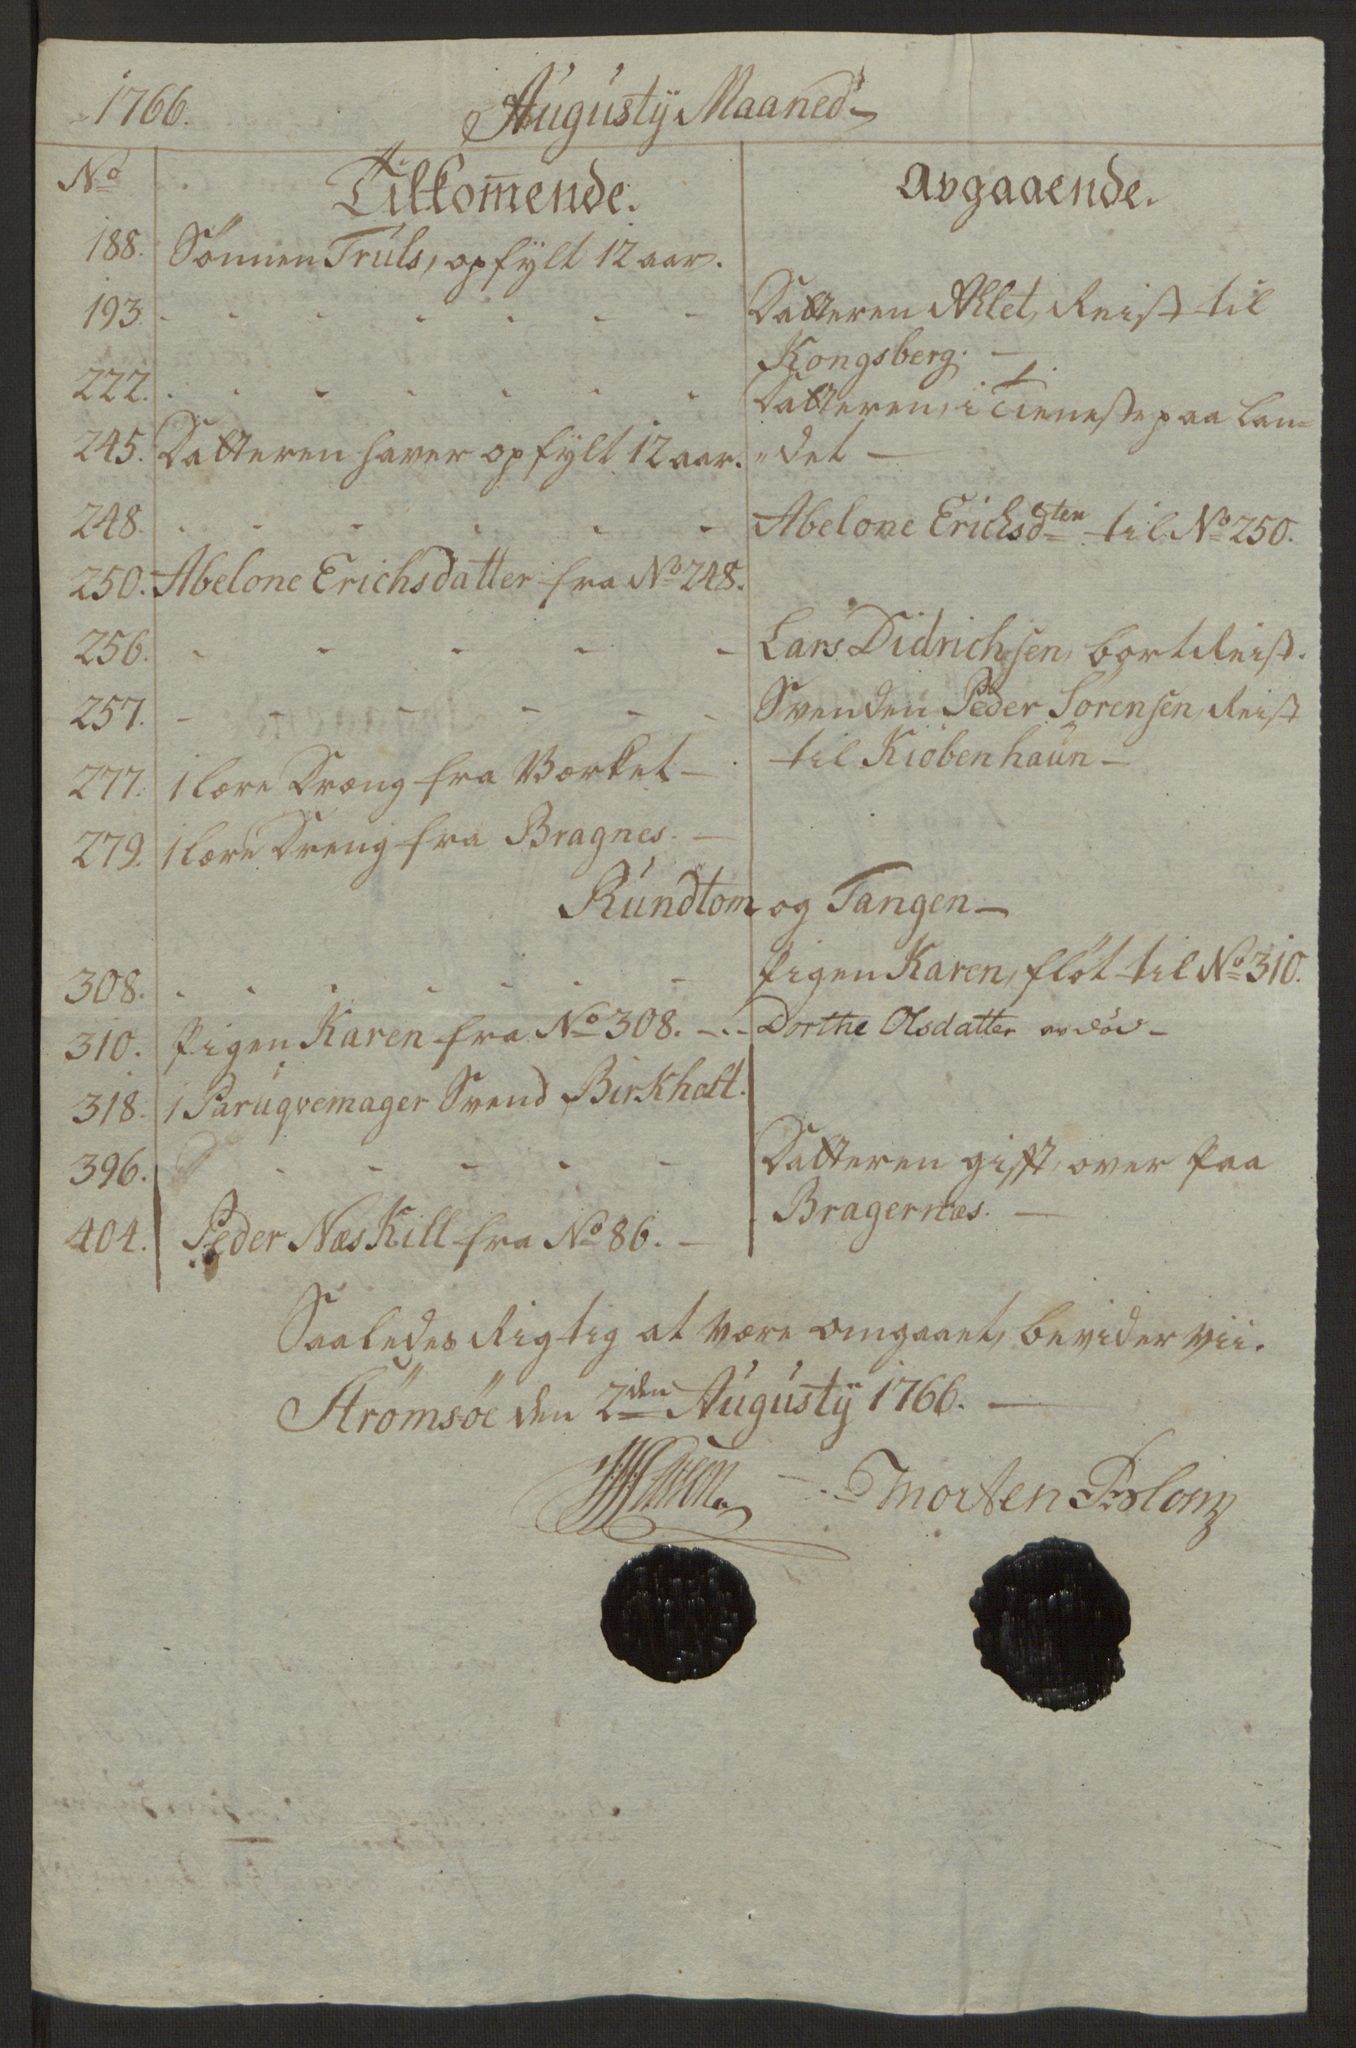 1766. Augusty Maaned
No Tilkom̅ende. Avgaaende.
188. Sönnen Truls, opfylt 12 aar.
193. - - - - - - - Datteren Allet, Reist til
Kongsberg. -
222. - - - - - - - Datteren, i Tieneste paa Lan-
245. Datteren haver opfylt 12 aar. -det -
248. - - - - - - Abelone Erichsdten til No 250.
250. Abelone Erichsdatter fra No 248.
256. - - - - - Lars Didrichsen, bort Reist.
257. - - - - - - Svenden Peder Sörensen, Reist
til Kiöbenhaun -
277. 1 lære Dræng fra Værket -
279. 1 lære Dreng fra Bragnes. -
Rundtom og Tangen -
308. - - - - - - - Pigen Karen, flöt til No 310.
310. Pigen Karen fra No 308. - Dorthe Olsdatter avdöd -
318. 1 Paruqvemager Svend Birkholt.
396. - - - - - Datteren gifft, over Paa
Bragernæs. -
404. Peder Næs Kill fra No 86. -
Saaledes Rigtig at være omgaaet, bevider vii.
Strömsöe den 2den Augusty 1766. -
Morten